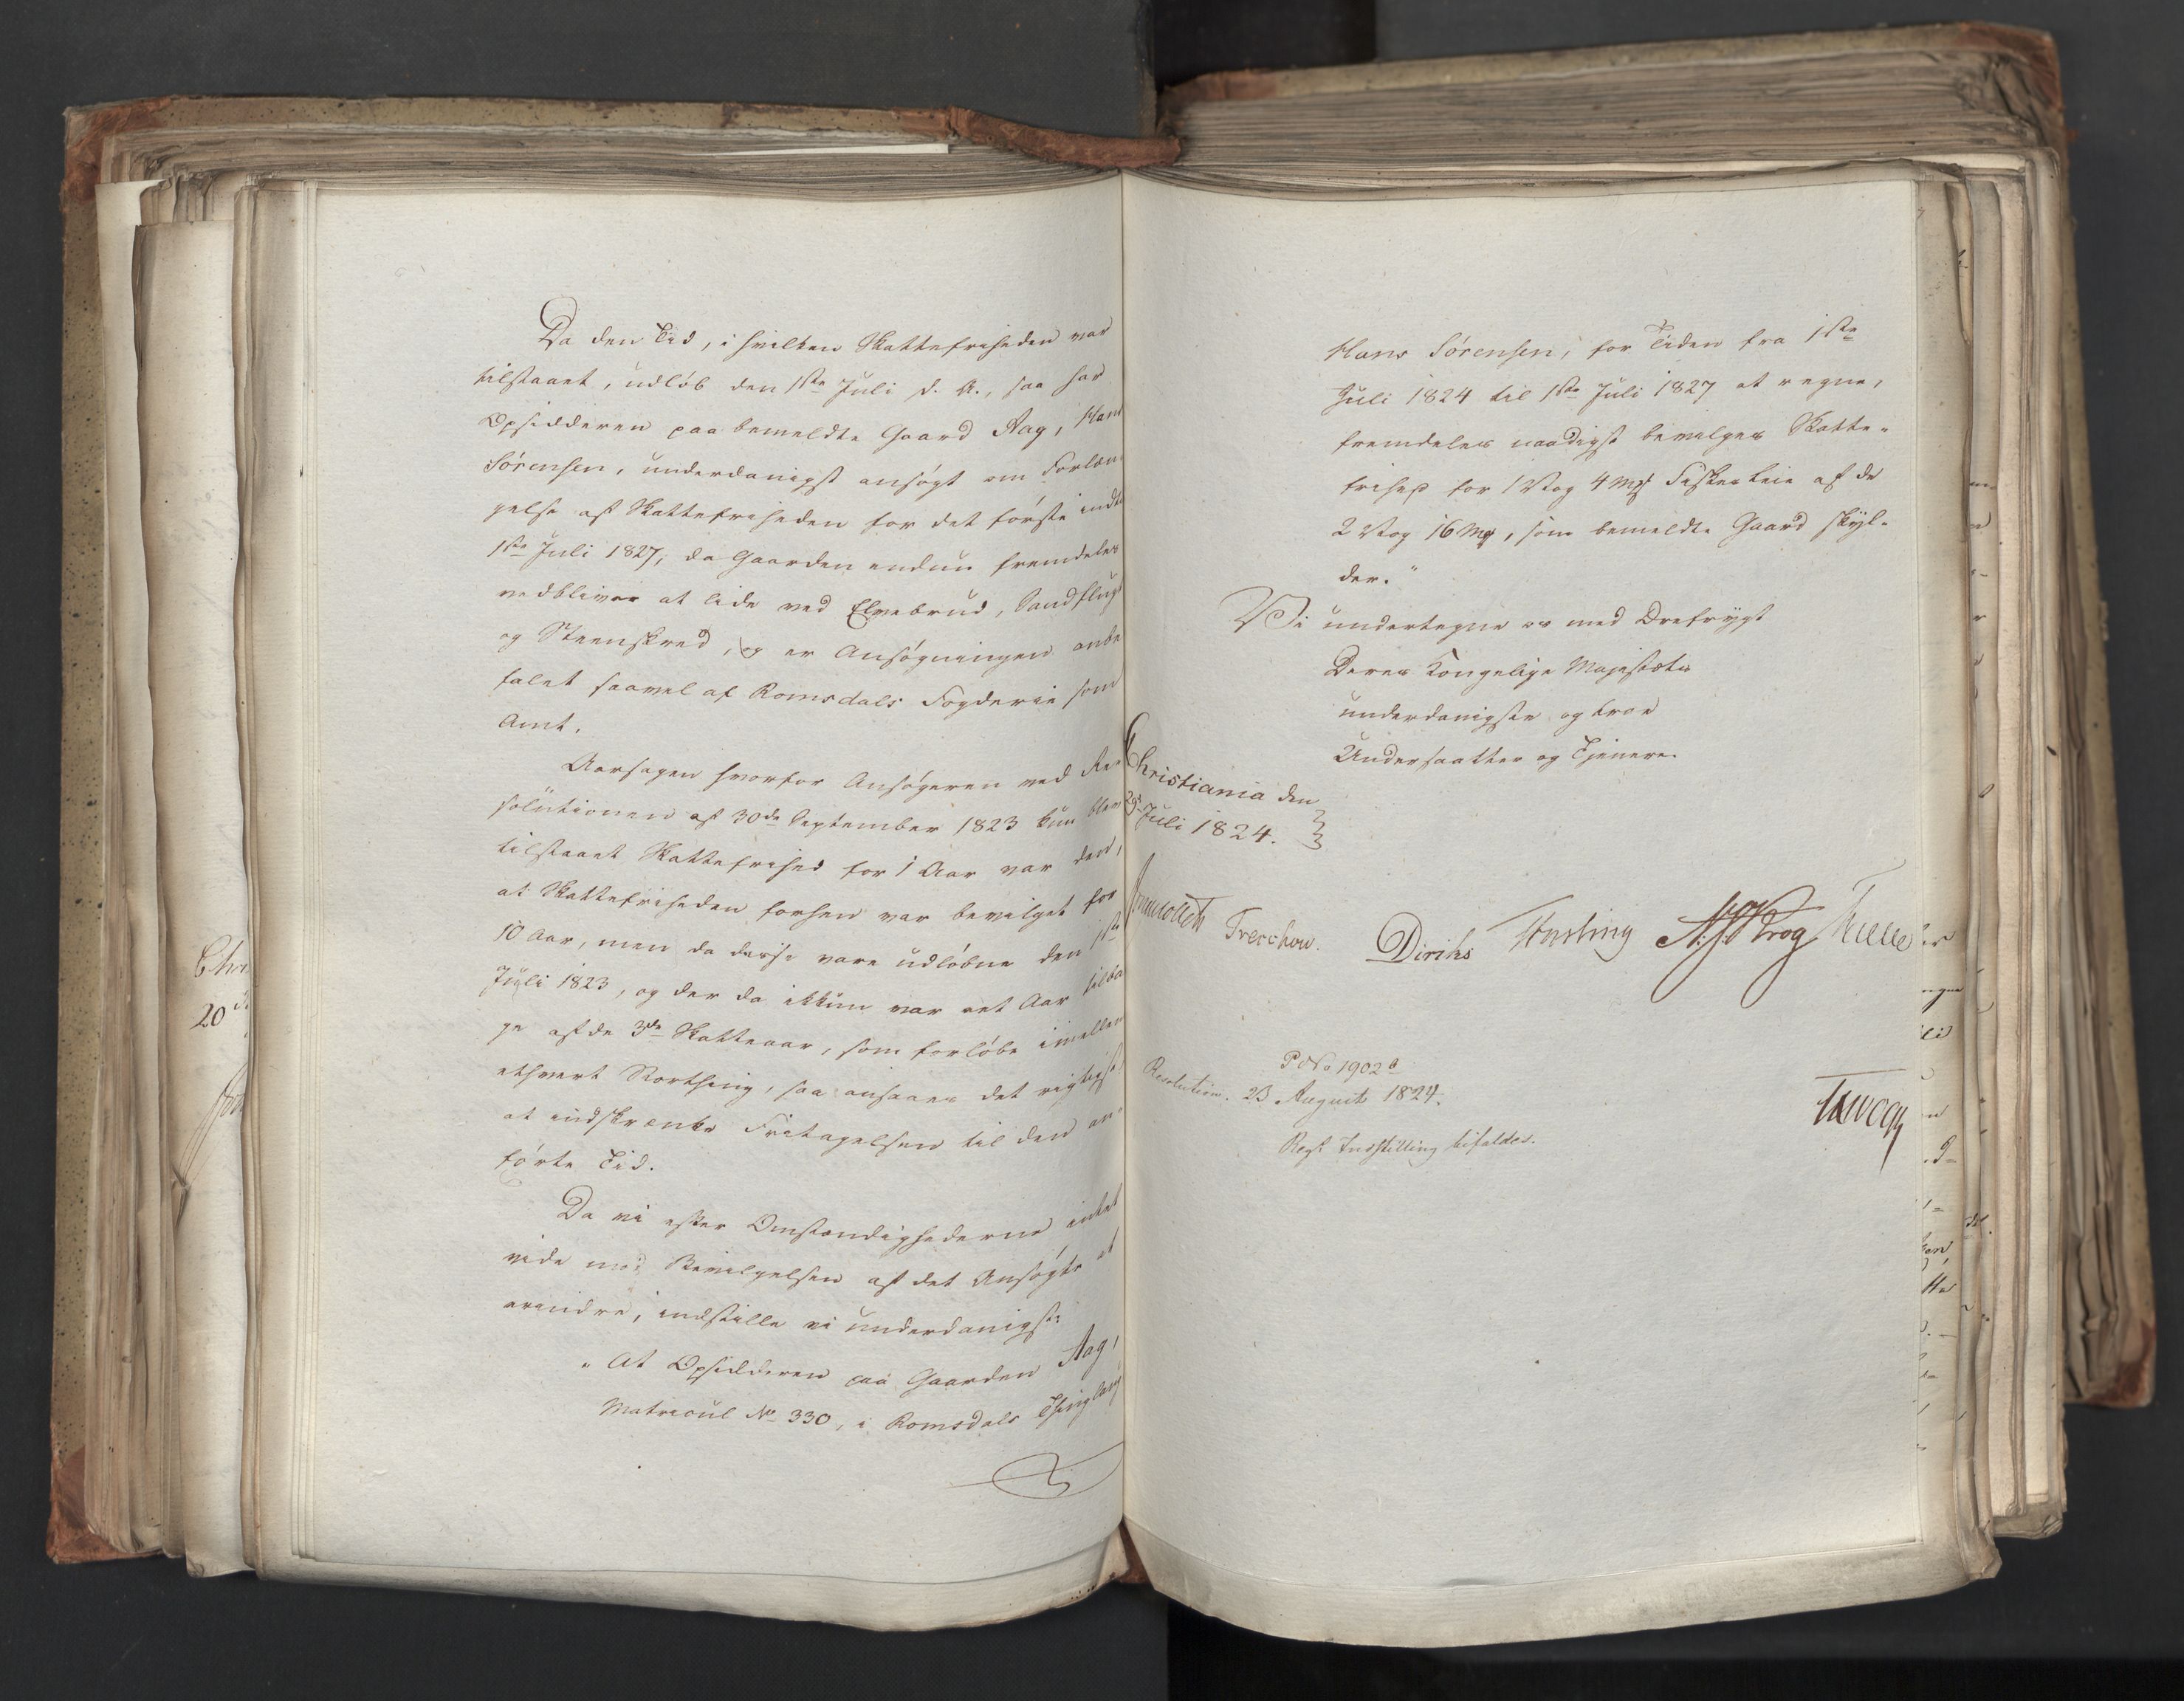 Da den Tid, i hvilken Skattefriheden var
tilstaaet, udløb den 1ste Juli d. A., saa har
Opsidderen paa bemeldte Gaard Aag, Hans
Sørensen, underdanigst ansøgt om Forlæn
gelse af Skattefriheden for det første indtil
1ste Juli 1827, da Gaarden endnu fremdeles
vedbliver at lide ved Elvebrud, Sandflugt
og Steenskred, og er Ansøgningen anbe
falet saavel af Romsdals Fogderie som
Amt.
Aarsagen hvorfor Ansøgeren ved Re
solutionen af 30de September 1823 kun blev
tilstaaet Skattefrihed for 1 Aar var den,
at Skattefriheden forhen var bevilget for
10 Aar, men da disse vare udløbne den 1ste
Juli 1823, og der da ikkun var eet Aar tilba
ge af de 3de Skatteaar, som forløbe imellem
ethvert Storthing, saa ansaaes det rigtigst
at indskrænke Fritagelsen til den an
førte Tid.
Da vi efter Omstændighederne intet
vide mod Bevilgelsen af det Ansøgte at
erindre, indstille vi underdanigst:
"At Opsidderen paa Gaarden Aag,
Matricul No 330, i Romsdals Thinglaug
Hans Sørensen, for Tiden fra 1ste
Juli 1824 til 1ste Juli 1827 at regne,
fremdeles naadigst bevilges Skatte-
frihed for 1 Vog 4 Mrk Fiskesleie af de
2 Vog 16 Mrk, som bemeldte Gaard skyl-
der."
Vi undertegne os med Ærefrygt
Deres Kongelige Majestæts
underdanigste og troe
Undersaatter og Tjenere.
Christiania den
29de Juli 1824.
Sommerhielm Treschow. Diriks Fasting N.J. Krog
P No 1902 a
Resolution. 23 August 1824.
Regs Indstilling bifaldes.
Chri
20de